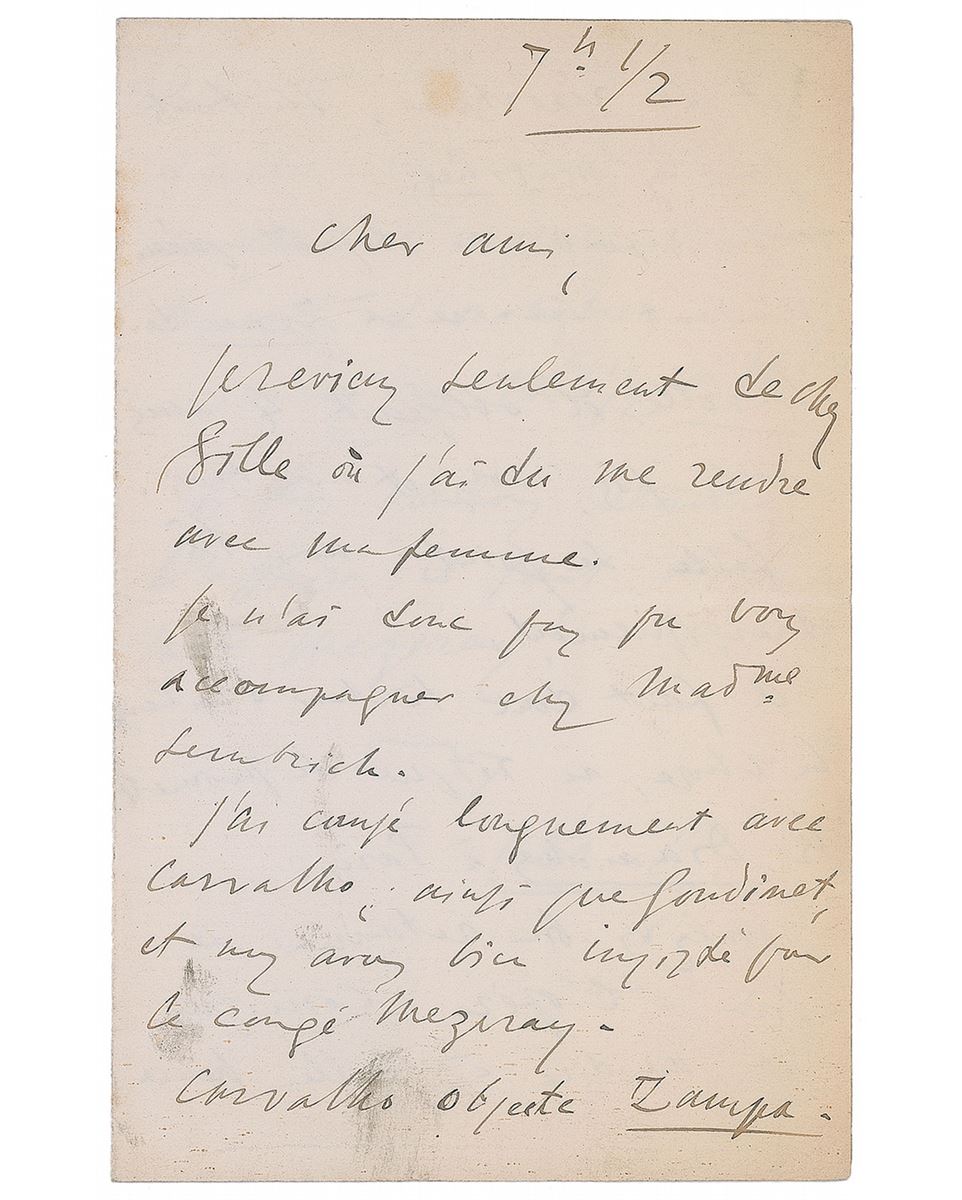 7h 1/2
cher ami,
je reviens seulement de chez
Gille où j'ai du me rendre
avec ma femme.
je n'ai donc pas pu vous
accompagner chez Madme
Sembrich.
j'ai causé longuement avec
Carvalho, ainsi que Gondinet,
et nous avons bien insisté pour
le congé Mezeray.
Carvalho objecte Zampa.